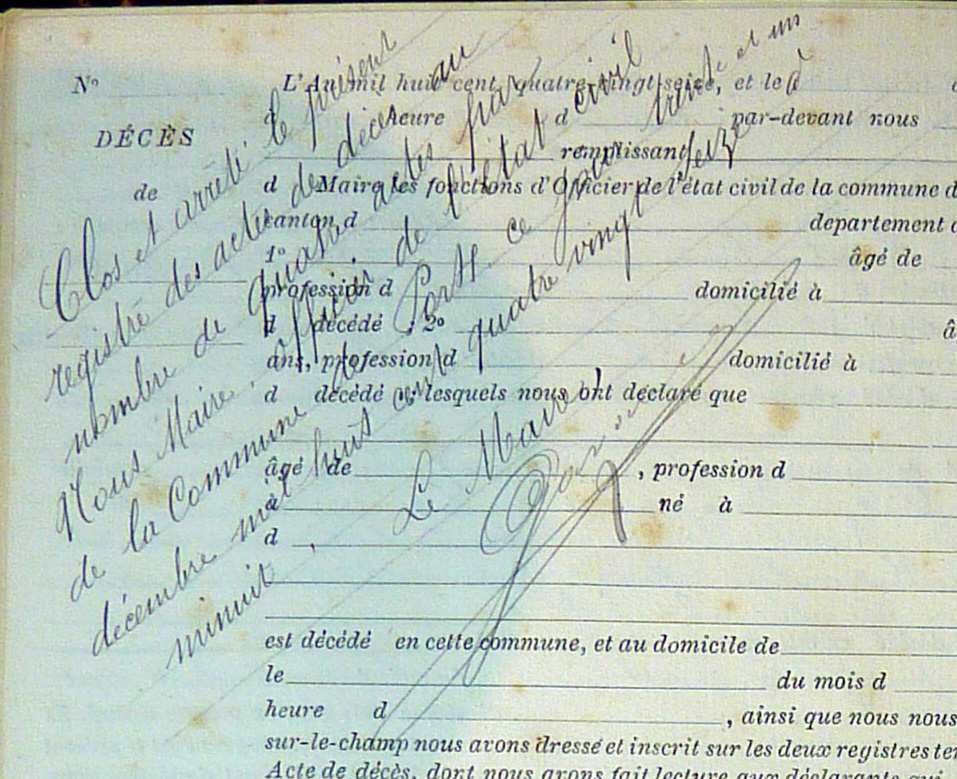 Nº
DÉCÈS
de
L'An mil huit cent quatre-vingt-seize, et le
heure d par-devant nous
remplissant
d Maire les fonctions d'Officier de l'état civil de la commune d
canton d département
1º âgé de
profession d domicilié à
d décédé ; 2º â
ans, profession d domicilié à
d décédé lesquels nous ont déclaré que
âgé de , profession d
à né à
d
est décédé en cette commune, et au domicile de
le du mois d
heure d , ainsi que nous nous
sur-le-champ nous avons dressé et inscrit sur les deux registres
Acte de décès, dont nous avons fait lecture aux déclarants qui
Clos et arrêté le présent
registre des actes de décès au
nombre de quatre actes par
Nous Maire, officier de l'état civil
de la Commune ce jour trente et un
décembre mil huit cent quatre vingt seize
minuit.
Le Maire